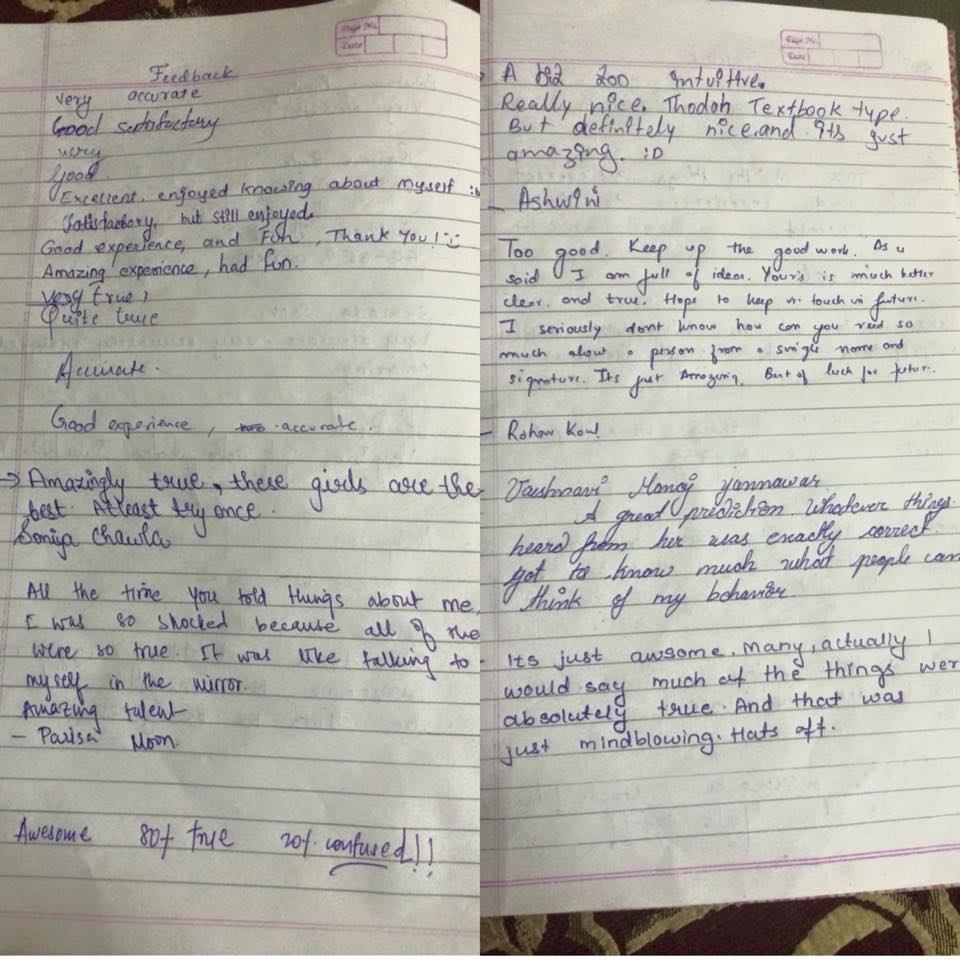 Page No.
Date
Feedback
very accurate
Good satisfactory
very
Good
Excellent, enjoyed knowing about myself :
Satisfactory, but still enjoyed.
Good experience, and Fun, Thank You! :)
Amazing experience, had fun.
very true,
Quite true
Accurate.
Good experience, accurate.
→ Amazingly true, these girls are the
best. Atleast try once.
Soniya Chawla
All the time you told things about me,
I was so shocked because all of the
were so true. It was like talking to
myself in the mirror.
Amazing talent
- Moon
Awesome 80% true 20% confused!!
Page No.
Date
A bit too intuitive.
Really nice. Thodoh Textbook type.
But definitely nice and its just
amazing. :D
- Ashwini
Too good. Keep up the good work. As u
said I am full of ideas. Your's is much better
clear and true. Hope to keep in touch in future.
I seriously dont know how can you read so
much about a person from a single name and
signature. Its just Amazing. Best of luck for future.
- Rohan Koul
Vaishnavi Manoj Yannawar
A great prediction whatever things
heard from her was exactly correct.
got to know much what people can
think of my behavior
Its just awsome. Many, actually I
would say much of the things wer
absolutely true. And that was
just mindblowing. Hats off.